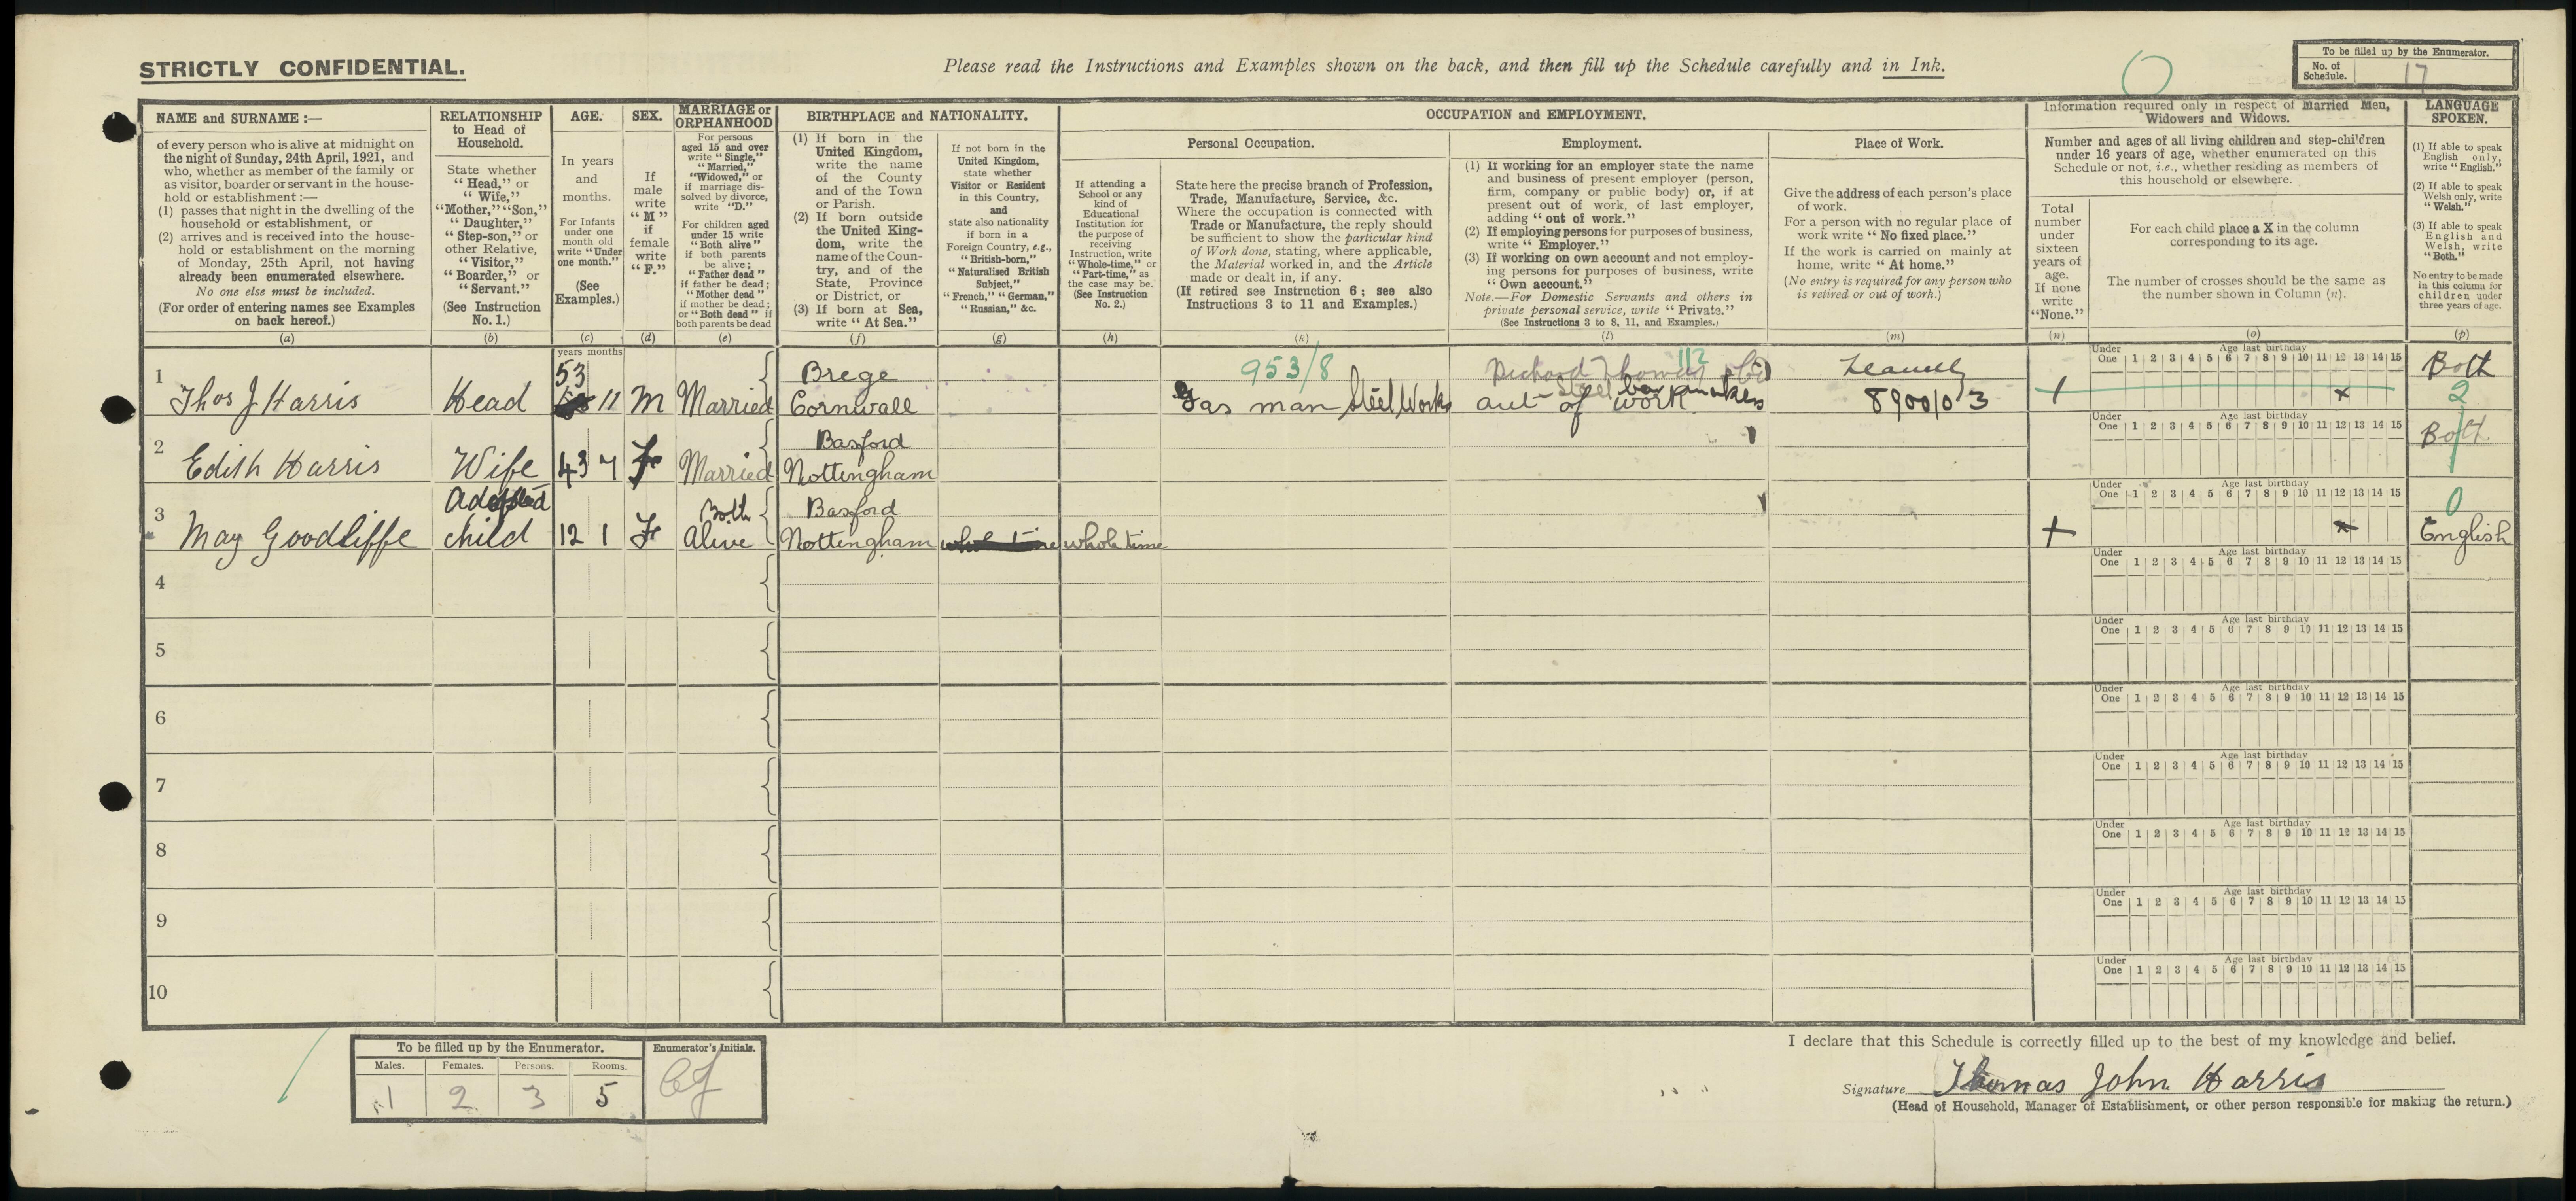 STRICTLY CONFIDENTIAL.
Please read the Instructions and Examples shown on the back, and then fill up the Schedule carefully and in Ink.
To be filled up by the Enumerator.
No. of Schedule. 17
NAME and SURNAME :—
of every person who is alive at midnight on
the night of Sunday, 24th April, 1921, and
who, whether as member of the family or
as visitor, boarder or servant in the house-
hold or establishment :—
(1) passes that night in the dwelling of the
household or establishment, or
(2) arrives and is received into the house-
hold or establishment on the morning
of Monday, 25th April, not having
already been enumerated elsewhere.
No one else must be included.
(For order of entering names see Examples
on back hereof.)
(a)
RELATIONSHIP
to Head of
Household.
State whether
"Head," or
"Wife,"
"Mother," "Son,"
"Daughter,"
"Step-son," or
other Relative,
"Visitor,"
"Boarder," or
"Servant."
(See Instruction
No. 1.)
(b)
AGE.
In years
and
months.
For Infants
under one
month old
write "Under
one month."
(See
Examples.)
(c)
SEX.
If
male
write
"M"
if
female
write
"F."
(d)
MARRIAGE or
ORPHANHOOD
For persons
aged 15 and over
write "Single,"
"Married,"
"Widowed," or
if marriage dis-
solved by divorce,
write "D."
For children aged
under 15 write
"Both alive"
if both parents
be alive;
"Father dead"
if father be dead;
"Mother dead"
if mother be dead;
or "Both dead" if
both parents be dead
(e)
BIRTHPLACE and NATIONALITY.
(1) If born in the
United Kingdom,
write the name
of the County
and of the Town
or Parish.
(2) If born outside
the United King-
dom, write the
name of the Coun-
try, and of the
State, Province
or District, or
(3) If born at Sea,
write "At Sea."
(f)
If not born in the
United Kingdom,
state whether
Visitor or Resident
in this Country,
and
state also nationality
if born in a
Foreign Country, e.g.,
"British-born,"
"Naturalised British
Subject,"
"French," "German,"
"Russian," &c.
(g)
OCCUPATION and EMPLOYMENT.
If attending a
School or any
kind of
Educational
Institution for
the purpose of
receiving
Instruction, write
"Whole-time," or
"Part-time," as
the case may be.
(See Instruction
No. 2.)
(h)
Personal Occupation.
State here the precise branch of Profession,
Trade, Manufacture, Service, &c.
Where the occupation is connected with
Trade or Manufacture, the reply should
be sufficient to show the particular kind
of Work done, stating, where applicable,
the Material worked in, and the Article
made or dealt in, if any.
(If retired see Instruction 6; see also
Instructions 3 to 11 and Examples.)
(k)
Employment.
(1) If working for an employer state the name
and business of present employer (person,
firm, company or public body) or, if at
present out of work, of last employer,
adding "out of work."
(2) If employing persons for purposes of business,
write "Employer."
(3) If working on own account and not employ-
ing persons for purposes of business, write
"Own account."
Note.—For Domestic Servants and others in
private personal service, write "Private."
(See Instructions 3 to 8, 11, and Examples.)
(l)
Place of Work.
Give the address of each person's place
of work.
For a person with no regular place of
work write "No fixed place."
If the work is carried on mainly at
home, write "At home."
(No entry is required for any person who
is retired or out of work.)
(m)
Information required only in respect of Married Men,
Widowers and Widows.
Number and ages of all living children and step-children
under 16 years of age, whether enumerated on this
Schedule or not, i.e., whether residing as members of
this household or elsewhere.
Total
number
under
sixteen
years of
age.
If none
write
"None."
(n)
For each child place a X in the column
corresponding to its age.
The number of crosses should be the same as
the number shown in Column (n).
(o)
LANGUAGE
SPOKEN.
(1) If able to speak
English only,
write "English."
(2) If able to speak
Welsh only, write
"Welsh."
(3) If able to speak
English and
Welsh, write
"Both."
No entry to be made
in this column for
children under
three years of age.
(p)
years months
1 Thos J Harris Head 53 11 M Married Brege Cornwall
953/8
Gas man Steel Works
Richard Thomas 112
Steel bar makers
out of work
Llanelly
8900/03
x
Both
2
2 Edith Harris Wife 43 7 F Married Basford Nottingham Both
3 May Goodliffe Adopted child 12 1 F Both Alive Basford Nottingham whole time whole time
x
0
English
4
5
6
7
8
9
10
Under One 1 2 3 4 5 6 7 8 9 10 11 12 13 14 15
Age last birthday
Under One 1 2 3 4 5 6 7 8 9 10 11 12 13 14 15
Age last birthday
Under One 1 2 3 4 5 6 7 8 9 10 11 12 13 14 15
Age last birthday
Under One 1 2 3 4 5 6 7 8 9 10 11 12 13 14 15
Age last birthday
Under One 1 2 3 4 5 6 7 8 9 10 11 12 13 14 15
Age last birthday
Under One 1 2 3 4 5 6 7 8 9 10 11 12 13 14 15
Age last birthday
Under One 1 2 3 4 5 6 7 8 9 10 11 12 13 14 15
Age last birthday
Under One 1 2 3 4 5 6 7 8 9 10 11 12 13 14 15
Age last birthday
Under One 1 2 3 4 5 6 7 8 9 10 11 12 13 14 15
Age last birthday
Under One 1 2 3 4 5 6 7 8 9 10 11 12 13 14 15
Age last birthday
To be filled up by the Enumerator.
Males. Females. Persons. Rooms.
1 2 3 5
Enumerator's Initials.
I declare that this Schedule is correctly filled up to the best of my knowledge and belief.
Signature Thomas John Harris
(Head of Household, Manager of Establishment, or other person responsible for making the return.)